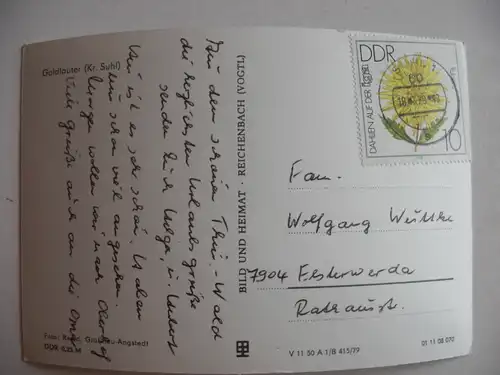 Goldlauter (Kr. Suhl)
Aus dem schönen Thür.-Wald
die herzlichsten Urlaubsgrüße
senden Euch Helga, u. Hubert
Hier ist es sehr schön. Haben
uns schon viel angesehen.
Morgen wollen wir nach Oberhof
Viele Grüße auch an die Omi
Foto:
DDR 0,20 M
BILD UND HEIMAT · REICHENBACH (VOGTL)
DDR
DAHLIEN AUF DER
10
Fam.
Wolfgang Wuttke
7904 Elsterwerda
Rathausstr.
V 11 50 A 1/B 415/79
01 11 08 070